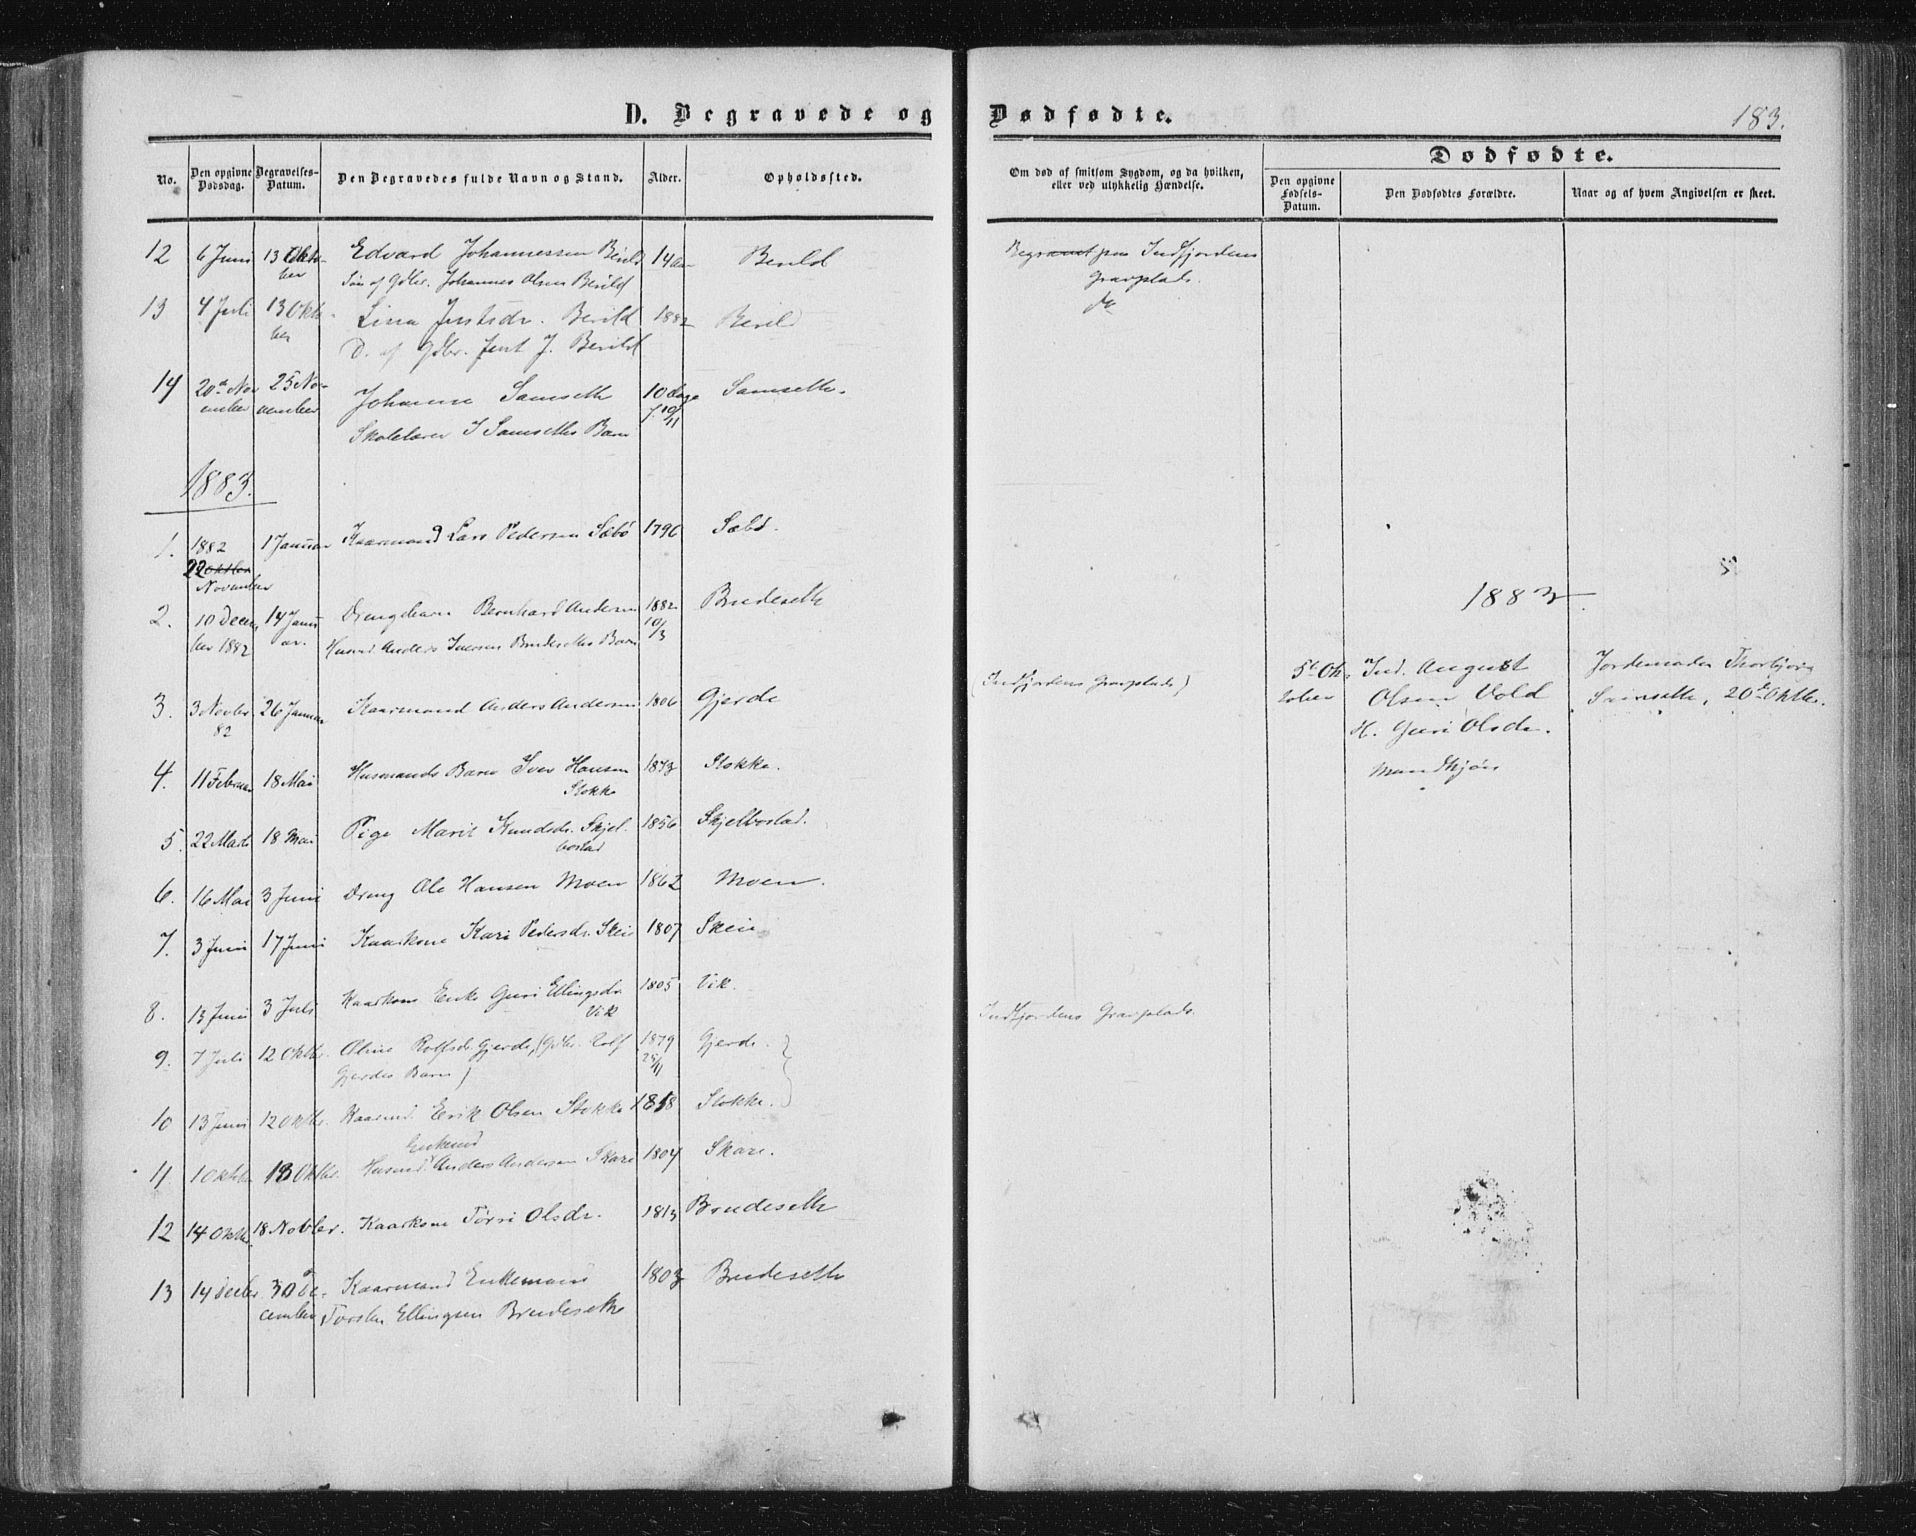 D. Begravede og Dødfødte.
183.
No.
Den opgivne Dødsdag.
Begravelses-Datum.
Den Begravedes fulde Navn og Stand.
Alder.
Opholdssted.
Om død af smitsom Sygdom, og da hvilken,
eller ved ulykkelig Hændelse.
Dødfødte.
Den opgivne Fødsels-Datum.
Den Dødfødtes Forældre.
Naar og af hvem Angivelsen er skeet.
12 6 Juni 13 Okto- Edvard Johannessen Berild 14 Berild
ber Søn af Gdbr. Johannes Olsen Berild
Begravet paa Indfjordens
Gravplads.
13 4 Juli 13 Okto- Lina Jentsdr. Berild 1882 Berild
ber D. af Gdbr. Jent J. Berild
14 20de Nov 25 No- Johanne Samseth 10 Dage Samseth.
ember vember Skolelærer J Samseths Barn f. 10/11
1883.
1. 1882 1 Januar Kaarmand Lars Pedersen Sæbø 1796 Sæbø.
22 Oktber
November
2. 10 Decem 14 Janu Drengebarn Bernhard Andersen 1882 Brudeseth
ber 1882 ar. Husmd. Anders Iversen Brudeseths Barn 10/3
3. 3 Novbr 26 Januar Kaarmand Anders Andersen 1806 Gjerde
82
(Indfjordens Gravplads)
4. 11 Februar 18 Mai Husmands Barn Iver Hansen 1873 Stokke.
Stokke
5. 22 Marts 18 Mai Pige Marit Knudsdr. Skjel- 1856 Skjelbostad.
bostad
6. 16 Mai 3 Juni Dreng Ole Hansen Moen 1862 Moen.
7. 3 Juni 17 Juni Kaarkone Kari Pedersdr. Skeie 1807 Skeie
8. 13 Juni 3 Juli Kaarkone Enke Guri Ellingsdr. 1805 Vik.
Vik
Indfjordens Gravplads.
9. 7 Juli 12 Oktbr. Oline Rolfsdr. Gjerde, (Gdbr. Rolf 1879 Gjerde.
Gjerdes Barn) 25/11
10 13 Juni 12 Oktbr. Kaarmd. Erik Olsen Stokke 1818 Stokke.
Enkemd
11. 1 Oktber 13 Oktbr. Husmd. Anders Andersen Skare 1804 Skare.
12 14 Oktbr. 18 Novber. Kaarkone Törri Olsdr. 1813 Brudeseth
13 14 Decbr. 30 De- Kaarmand Enkemand 1803 Brudeseth
cember Torsten Ellingsen Brudeseth
1883.
5te Ok- Ind. August
tober Olsen Vold
H. Guri Olsdr.
Mandkjön
Jordemoder Thorbjörg
Samseth, 20de Oktbr.